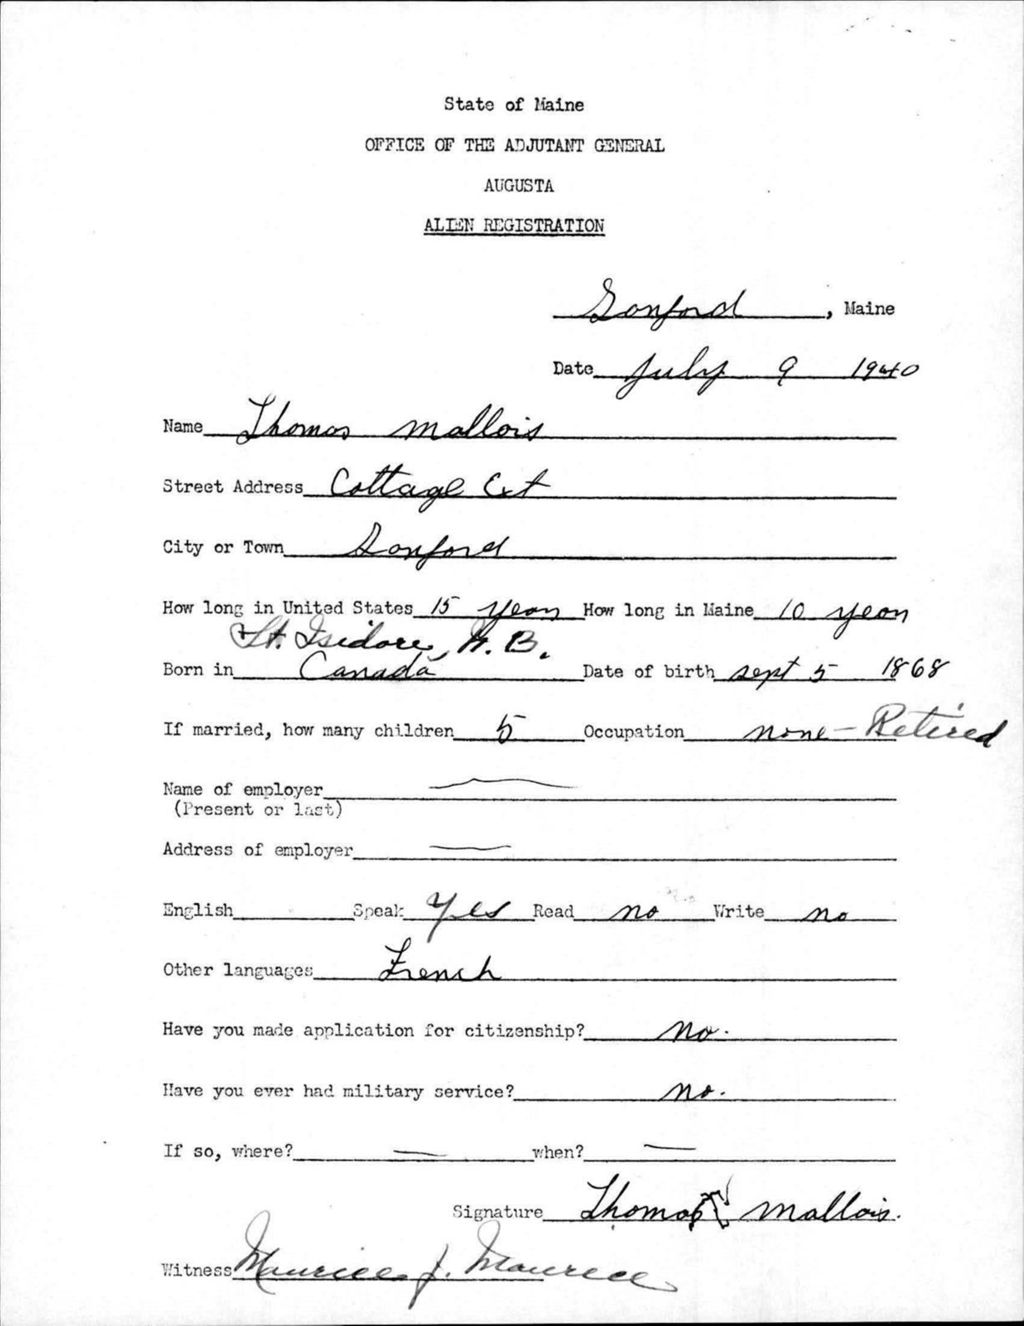 State of Maine
OFFICE OF THE ADJUTANT GENERAL
AUGUSTA
ALIEN REGISTRATION
Sanford, Maine
Date July 9 1940
Name Thomas Mallois
Street Address Cottage Ext
City or Town Sanford
How long in United States 15 years How long in Maine 10 years
St. Isidore, N. B.
Born in Canada Date of birth Sept 5 1868
If married, how many children 5 Occupation none - Retired
Name of employer
(Present or last)
Address of employer
English Speak Yes Read no Write no
Other languages French
Have you made application for citizenship? No.
Have you ever had military service? No.
If so, where? when?
Signature Thomas Mallois.
Witness Maurice J. Maurice